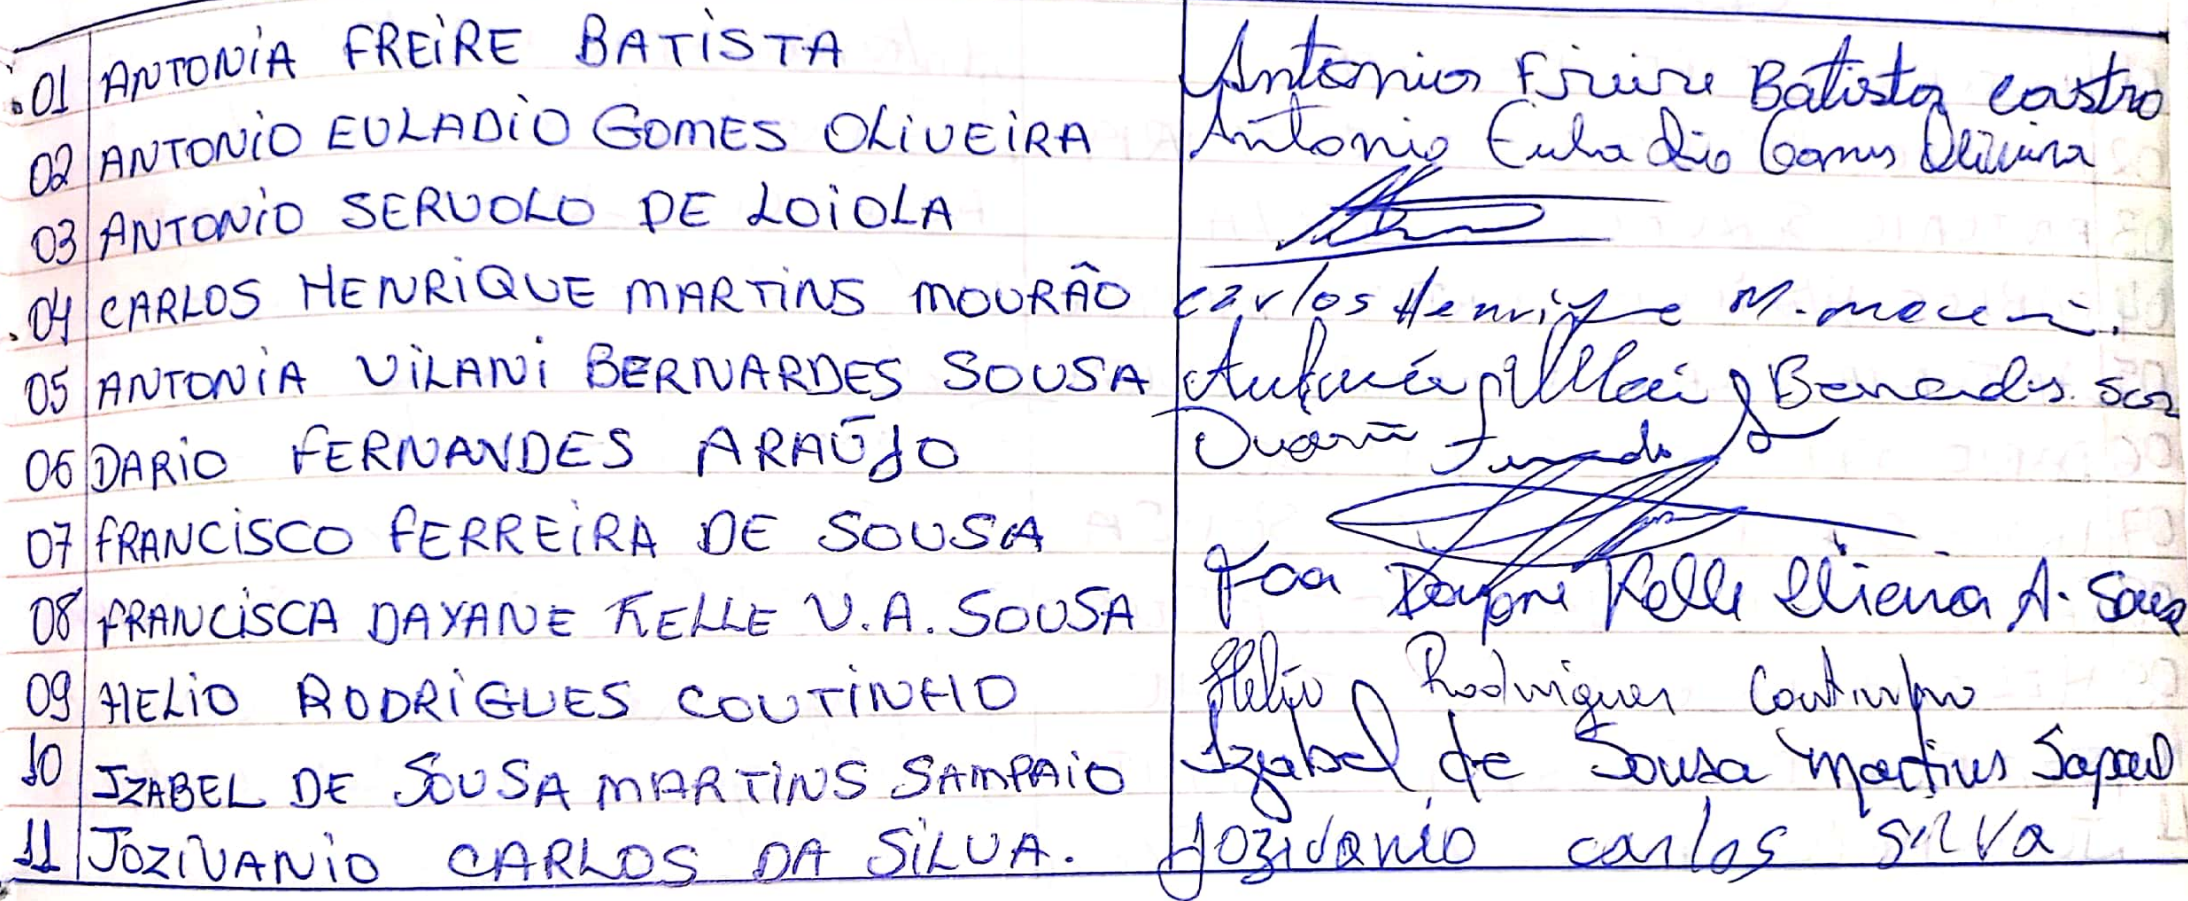 01 ANTONIA FREIRE BATISTA Antonia Freire Batista Castro
02 ANTONIO EULADIO GOMES OLIVEIRA Antonio Euladio Gomes Oliveira
03 ANTONIO SERVOLO DE LOIOLA
04 CARLOS HENRIQUE MARTINS MOURÃO Carlos Henrique M.
05 ANTONIA VILANI BERNARDES SOUSA
06 DARIO FERNANDES ARAÚJO
07 FRANCISCO FERREIRA DE SOUSA
08 FRANCISCA DAYANE KELLE V.A. SOUSA Fca Dayane Kelle Vieira A. Sousa
09 HELIO RODRIGUES COUTINHO Helio Rodrigues Coutinho
10 IZABEL DE SOUSA MARTINS SAMPAIO Izabel de Sousa Martins
11 JOZIVANIO CARLOS DA SILVA. Jozivanio carlos silva